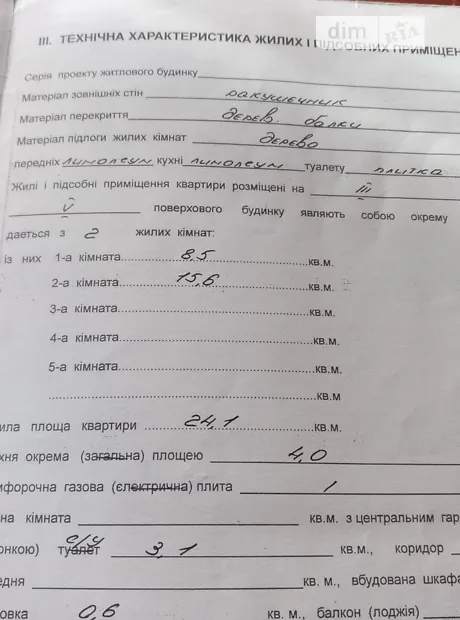 dim RIA
III. ТЕХНІЧНА ХАРАКТЕРИСТИКА ЖИЛИХ І ПІДСОБНИХ ПРИМІЩЕН
Серія проекту житлового будинку
Матеріал зовнішніх стін ракушечник
Матеріал перекриття дерев. балки
Матеріал підлоги жилих кімнат дерево
передніх линолеум кухні линолеум туалету плитка
Жилі і підсобні приміщення квартири розміщені на III
V поверхового будинку являють собою окрему
дається з 2 жилих кімнат:
із них 1-а кімната 8,5 кв.м.
2-а кімната 15,6 кв.м.
3-а кімната кв.м.
4-а кімната кв.м.
5-а кімната кв.м.
кв.м
ила площа квартири 24,1 кв.м.
хня окрема (загальна) площею 4,0
мфорочна газова (єлектрична) плита 1
на кімната кв.м. з центральним гар
онкою) с/у туалет 3,1 кв.м., коридор
едня кв. м., вбудована шкафа
овка 0,6 кв. м., балкон (лоджія)